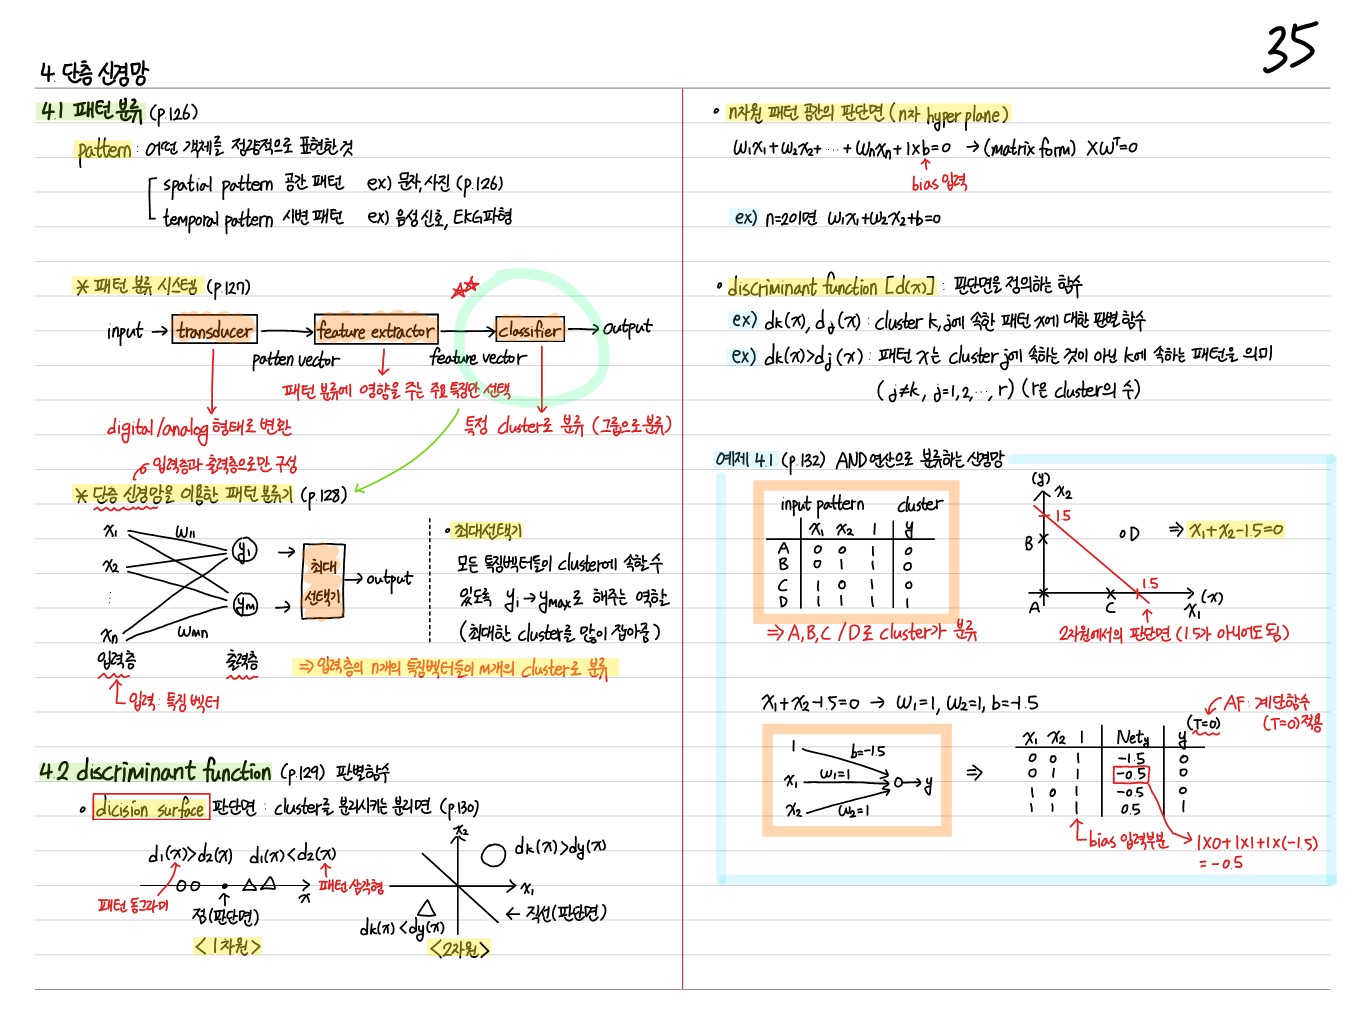 35
4. 단층 신경망
4.1 패턴 분류 (p.126)
pattern : 어떤 객체를 정량적으로 표현한 것
spatial pattern 공간 패턴 ex) 문자, 사진 (p.126)
temporal pattern 시변 패턴 ex) 음성 신호, EKG 파형
* 패턴 분류 시스템 (p.127)
input → transducer → feature extractor → classifier → output
patten vector feature vector
패턴 분류에 영향을 주는 주요 특징만 선택
digital/analog 형태로 변환
특정 cluster로 분류 (그룹으로 분류)
입력층과 출력층으로만 구성
* 단층 신경망을 이용한 패턴 분류기 (p.128)
x₁ w₁₁ y₁
x₂ 최대 선택기 → output
⋮ yₘ
xₙ wₘₙ
입력층 출력층
입력 : 특징 벡터
• 최대선택기
모든 특징벡터들이 cluster에 속할 수
있도록 yᵢ → yₘₐₓ로 해주는 역할
(최대한 cluster를 많이 잡아줌)
⇒ 입력층의 n개의 특징벡터들이 m개의 cluster로 분류
4.2 discriminant function (p.129) 판별함수
• dicision surface 판단면 : cluster를 분리시키는 분리면 (p.130)
d₁(x)>d₂(x) d₁(x)<d₂(x)
패턴 동그라미 패턴 삼각형
x
점(판단면)
<1차원>
x₂
dk(x)>dy(x)
x₁
← 직선(판단면)
dk(x)<dy(x)
<2차원>
• n차원 패턴 공간의 판단면 (n차 hyper plane)
w₁x₁+w₂x₂+ ⋯ +wₙxₙ+1×b=0 → (matrix form) XWᵀ=0
bias 입력
ex) n=2이면 w₁x₁+w₂x₂+b=0
• discriminant function [d(x)] : 판단면을 정의하는 함수
ex) dk(x), dj(x) : cluster k, j에 속한 패턴 x에 대한 판별함수
ex) dk(x)>dj(x) : 패턴 x는 cluster j에 속하는 것이 아닌 k에 속하는 패턴을 의미
(j≠k, j=1,2,⋯,r) (r은 cluster의 수)
예제 4.1 (p.132) AND 연산으로 분류하는 신경망
input pattern cluster
x₁ x₂ 1 y
A 0 0 1 0
B 0 1 1 0
C 1 0 1 0
D 1 1 1 1
⇒ A,B,C / D로 cluster가 분류
(y)
x₂
1.5
B D
1.5
A C x₁ (x)
⇒ x₁+x₂-1.5=0
2차원에서의 판단면 (1.5가 아니어도 됨)
x₁+x₂-1.5=0 → w₁=1, w₂=1, b=-1.5
1 b=-1.5
x₁ w₁=1 → y
x₂ w₂=1
⇒
AF : 계단함수
(T=0) 적용
(T=0)
x₁ x₂ 1 Net_y y
0 0 1 -1.5 0
0 1 1 -0.5 0
1 0 1 -0.5 0
1 1 1 0.5 1
bias 입력부분
1×0+1×1+1×(-1.5)
= -0.5